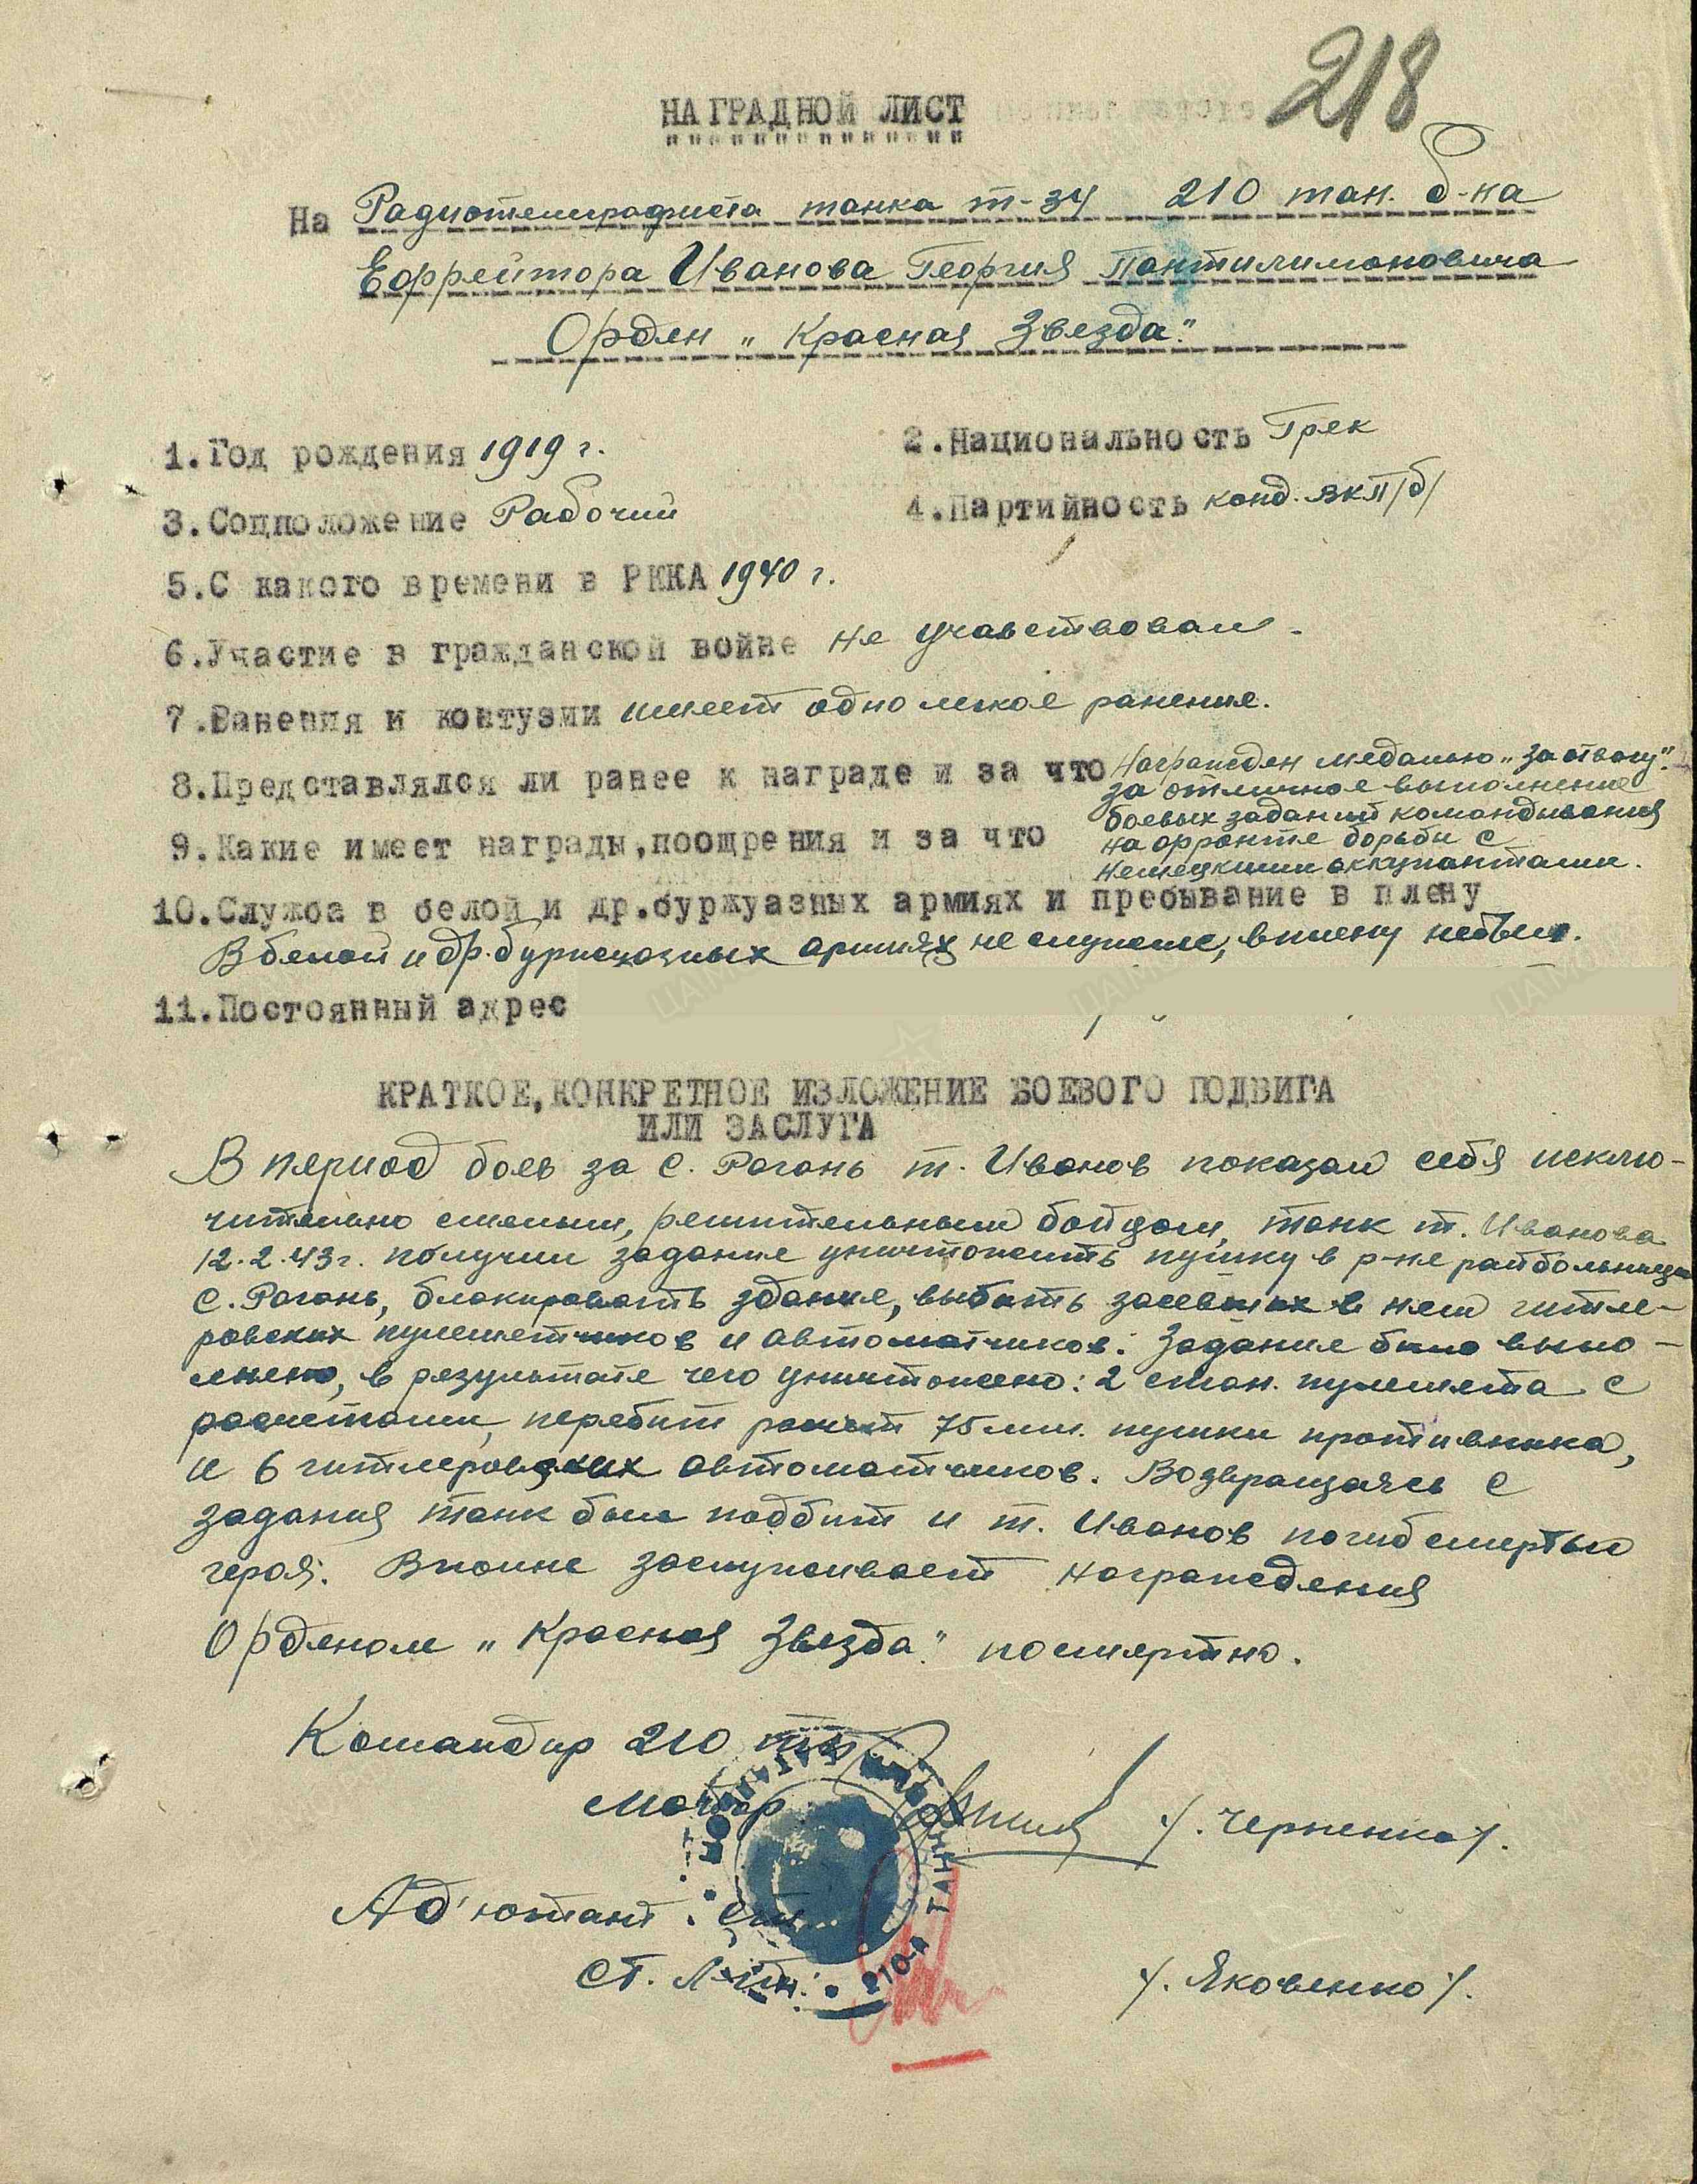 218
НАГРАДНОЙ ЛИСТ
На Радиотелеграфиста танка т-34 210 тан. б-на
Ефрейтора Иванова Георгия Пантилимоновича
Орден „Красная Звезда".
1.Год рождения 1919 г. 2.Национальность Грек
3.Соцположение Рабочий 4.Партийность канд. ВКП/б/
5.С какого времени в РККА 1940 г.
6.Участие в гражданской войне не участвовал.
7.Ранения и контузии имеет одно легкое ранение.
8.Представлялся ли ранее к награде и за что Награжден медалью „За отвагу".
за отличное выполнение
боевых заданий командывания
9.Какие имеет награды,поощрения и за что на фронте борьбы с
немецкими оккупантами.
10.Служба в белой и др.буржуазных армиях и пребывание в плену
В белой и др. буржуазных армиях не служил, в плену не был.
11.Постоянный адрес
КРАТКОЕ,КОНКРЕТНОЕ ИЗЛОЖЕНИЕ БОЕВОГО ПОДВИГА
ИЛИ ЗАСЛУГА
В период боев за с. Рогань т. Иванов показал себя исклю-
чительно смелым, решительным бойцом, танк т. Иванова
12.2.43г. получил задание уничтожить пушку в р-не райбольницы
с. Рогань, блокировать здание, выбить засевших в нем гитле-
ровских пулеметчиков и автоматчиков. Задание было выпо-
лнено, в результате чего уничтожено: 2 стан. пулемета с
расчетами, перебит расчет 75 мм. пушки противника,
и 6 гитлеровских автоматчиков. Возвращаясь с
задания танк был подбит и т. Иванов погиб смертью
героя. Вполне заслуживает награждения
Орденом „Красная Звезда" посмертно.
Командир 210 тб
майор /. Черненко/.
Ад'ютант ст.
ст. л-т: /. Яковенко/.
210-й